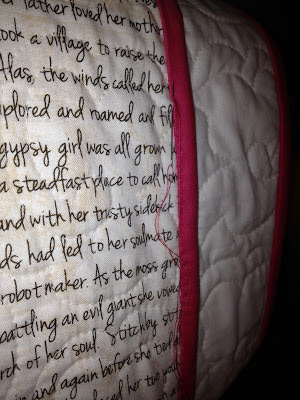 father loved her mother
took a village to raise the
Atlas, the winds called her
explored and roamed and fil
gypsy girl was all grown
a steadfast place to call hom
and with her trusty sidekick
ds had led to her soulmate
robot maker. As the moss gre
battling an evil giant she vowed
rch of her soul. Stitch by stit
and again before she tied
her two you